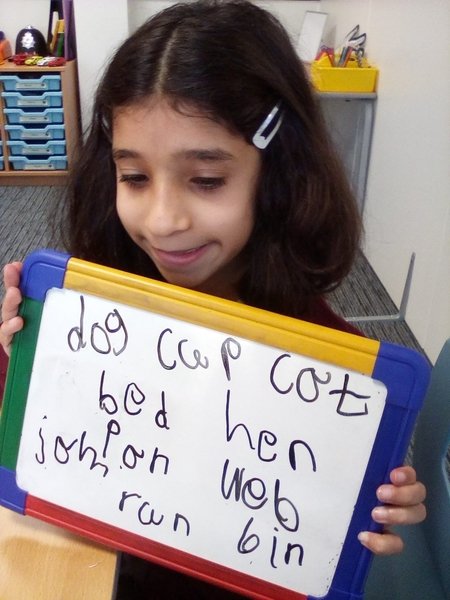 dog cap cat
bed hen
jam pan web
ran bin